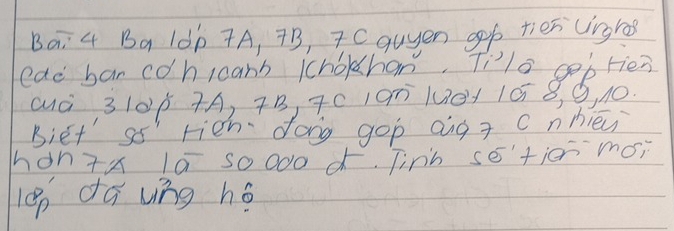 Bài 4 Ba lớp 7A, 7B, 7C quyen góp tiền ủng hộ
các bạn có h\canh khó khăn. Tỉ lệ góp tiền
của 3 lớp 7A, 7B, 7C lần lượt là 8, 9, 10.
Biết số tiền đóng góp của 7C nhiều
hơn 7A là 50 000 đ. Tính số tiền mỗi
lớp đã ủng hộ